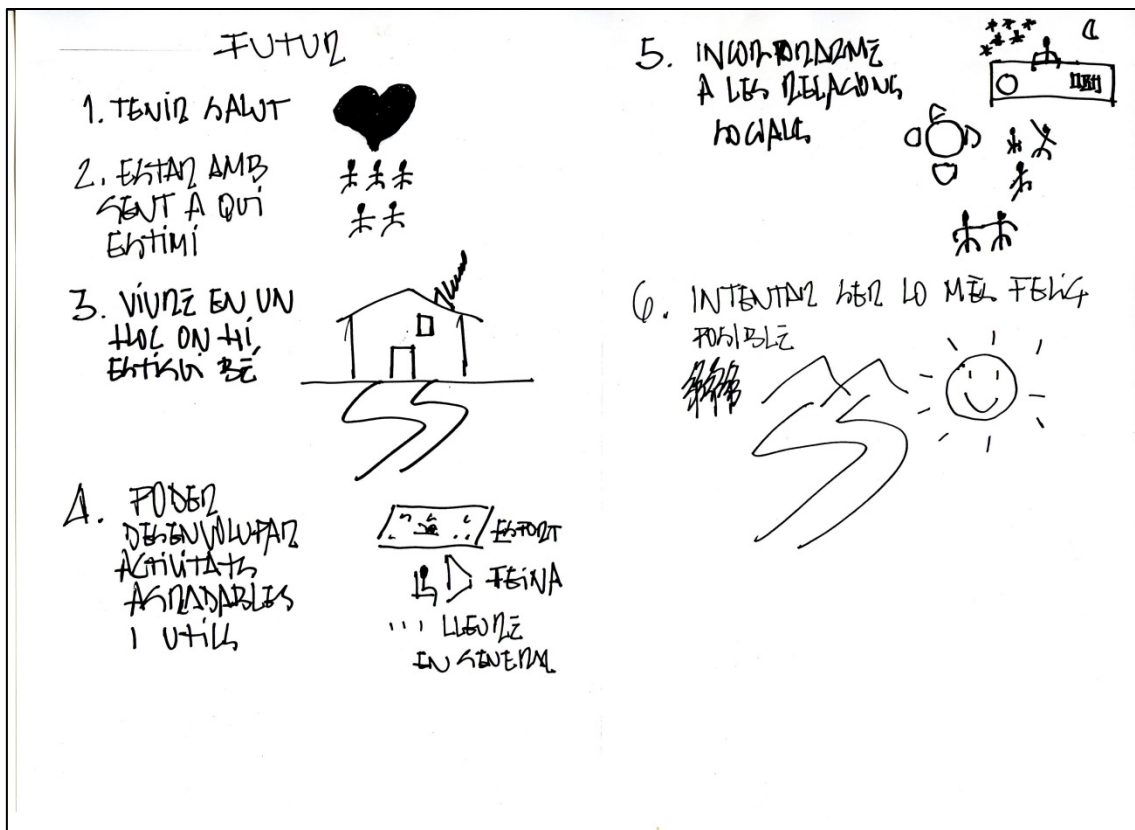 FUTUR
1. TENIR SALUT
2. ESTAR AMB
GENT A QUI
ESTIMI
3. VIURE EN UN
LLOC ON HI
ESTIGUI BÉ
4. PODER
DESENVOLUPAR
ACTIVITATS
AGRADABLES
I UTILS
ESPORT
FEINA
... LLEURE
EN GENERAL
5. INCORPORARME
A LES RELACIONS
SOCIALS
6. INTENTAR SER LO MÉS FELIÇ
POSIBLE